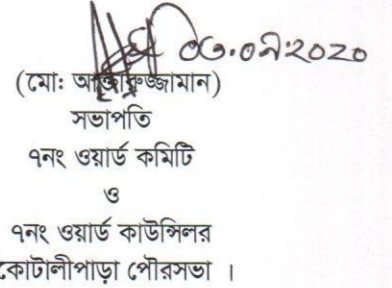 ০৩.০৯.২০২০
(মোঃ
সভাপতি
৭নং ওয়ার্ড কমিটি
ও
৭নং ওয়ার্ড কাউন্সিলর
কোটালীপাড়া পৌরসভা ।